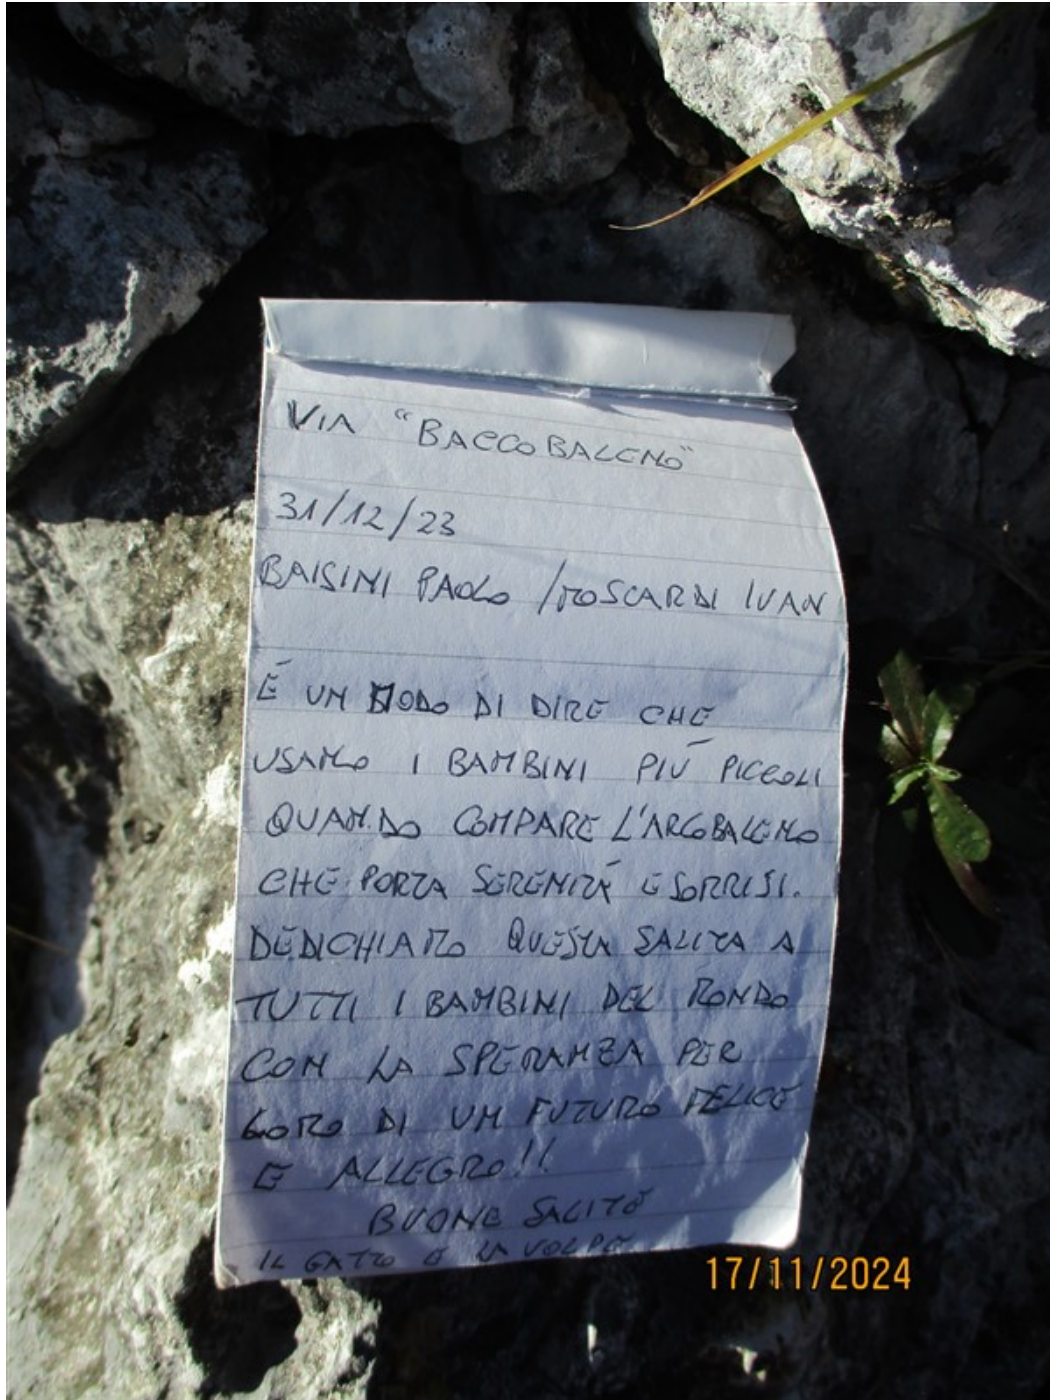 VIA "BACCOBALENO"
31/12/23
BAISINI PAOLO / MOSCARDI IVAN
É UN MODO DI DIRE CHE
USANO I BAMBINI PIÚ PICCOLI
QUANDO COMPARE L'ARCOBALENO
CHE PORTA SERENITÁ E SORRISI.
DEDICHIAMO QUESTA SALITA A
TUTTI I BAMBINI DEL MONDO
CON LA SPERANZA PER
LORO DI UN FUTURO FELICE
E ALLEGRO!!
BUONE SALITE
IL GATTO E LA VOLPE
17/11/2024